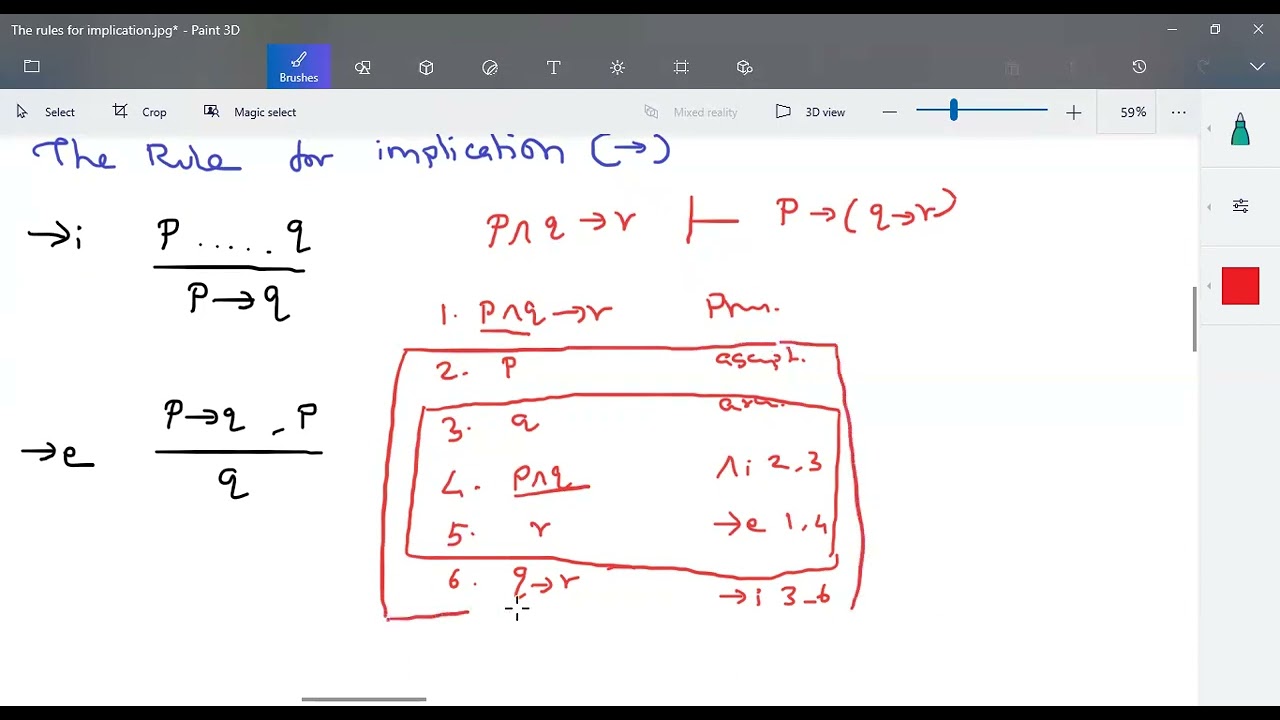 The rules for implication.jpg* - Paint 3D
Brushes
Select Crop Magic select Mixed reality 3D view 59%
The Rule for implication (→)
→i P ..... q
P→q
P∧q →r ⊢ P→(q→r)
1. P∧q →r Prm.
2. P
3. q
→e P→q , P
q
4. P∧q ∧i 2,3
5. r →e 1,4
6. q→r →i 3-6